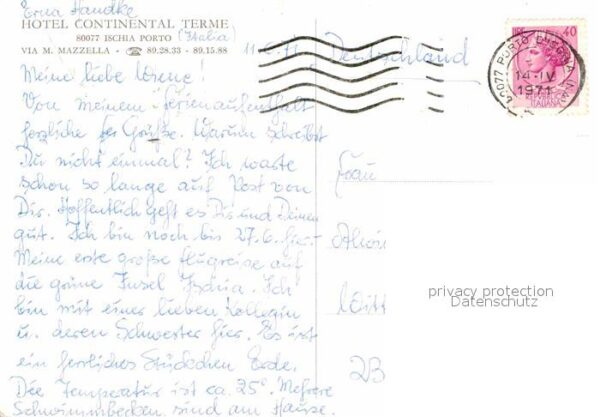 Erna Handke
HOTEL CONTINENTAL TERME
80077 ISCHIA PORTO (Italia)
VIA M. MAZZELLA - ☎ 89.28.33 - 89.15.88
Deutschland
40
14-IV
1971
ITALIANA
Meine liebe
Von meinem Ferienaufenthalt
herzliche Grüße. Warum schreibst
Du nicht einmal? Ich warte
schon so lange auf Post von
Dir. Hoffentlich geht es Dir und Deinen
gut. Ich bin noch bis 27.6. hier.
Meine erste große Flugreise auf
die grüne Insel Ischia. Ich
bin mit einer lieben Kollegin
u. deren Schwester hier. Es ist
ein herrliches Stückchen Erde.
Die Temperatur ist ca. 25°. Mehrere
Schwimmbecken sind am Hause.
Frau
Witt
23
privacy protection
Datenschutz